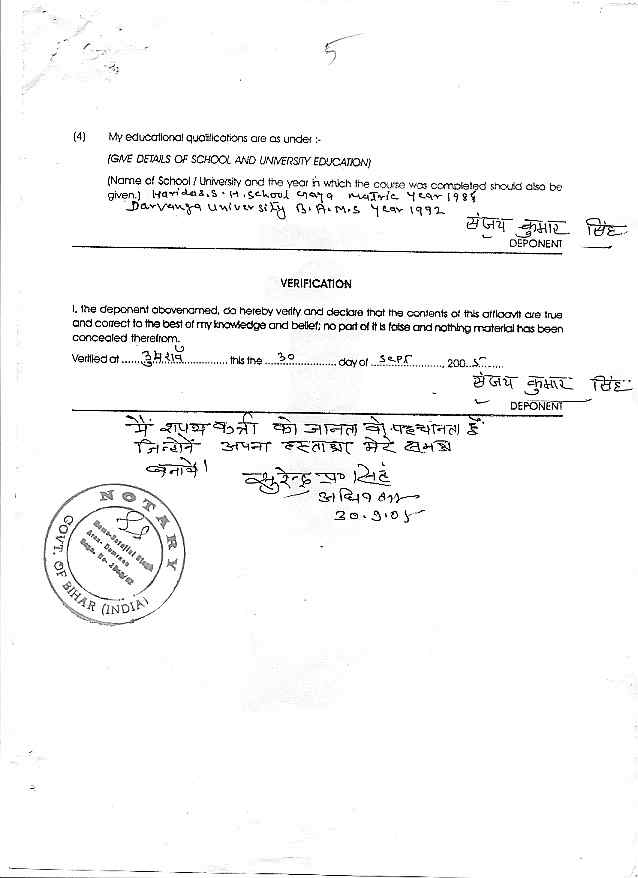 5
(4) My educational qualifications are as under :-
(GIVE DETAILS OF SCHOOL AND UNIVERSITY EDUCATION)
(Name of School / University and the year in which the course was completed should also be
given.) Haridas.S.H.School gaya matric Year 198
Darvanga University B.A.M.S Year 1992
संजय कुमार सिंह
DEPONENT
VERIFICATION
I, the deponent abovenamed, do hereby verify and declare that the contents of this affidavit are true
and correct to the best of my knowledge and belief; no part of it is false and nothing material has been
concealed therefrom.
Verified at ...... डुमराव .................. this the ....30.................... day of ...Sept....................., 2005........
संजय कुमार सिंह
DEPONENT
मैं शपथ कर्त्ता को जानता वो पहचानता हूँ
जिन्होंने अपना हस्ताक्षर मेरे समक्ष
बनाये।
सुरेन्द्र प्र० सिंह
अधिवक्ता
30.9.05
NOTARY
GOVT. OF BIHAR (INDIA)
Singh
Area. Dumraon
Regn. No.